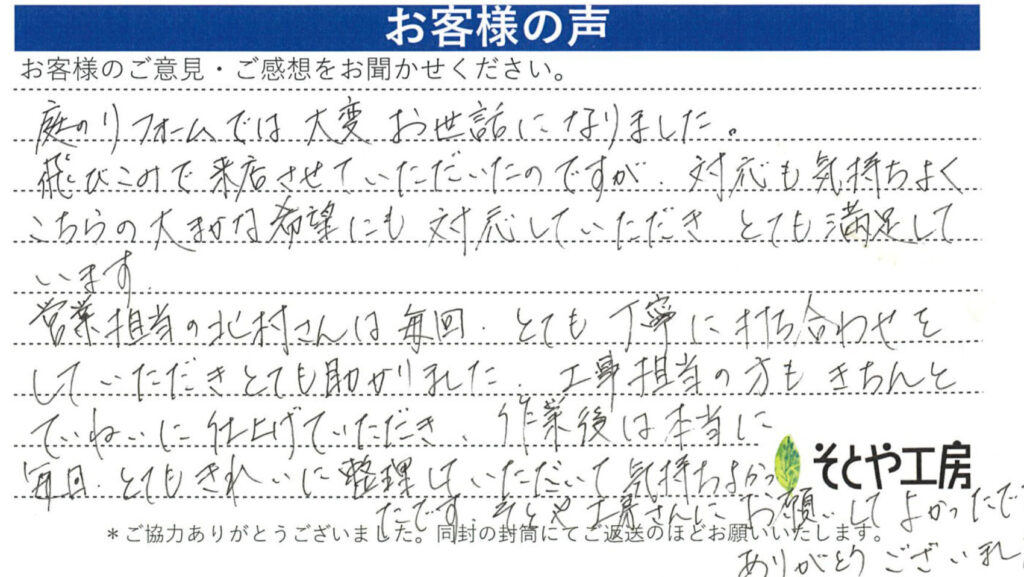 お客様の声
お客様のご意見・ご感想をお聞かせください。
庭のリフォームでは大変お世話になりました。
飛びこみで来店させていただいたのですが、対応も気持ちよく
こちらの大まかな希望にも対応していただきとても満足して
います。
営業担当の北村さんは毎回、とても丁寧に打ち合わせを
していただきとても助かりました。工事担当の方もきちんと
ていねいに仕上げていただき、作業後は本当に
毎回、とてもきれいに整理していただいて気持ちよかっ
たです。そとや工房さんにお願いしてよかったで
ありがとうございまし
そとや工房
*ご協力ありがとうございました。同封の封筒にてご返送のほどお願いいたします。